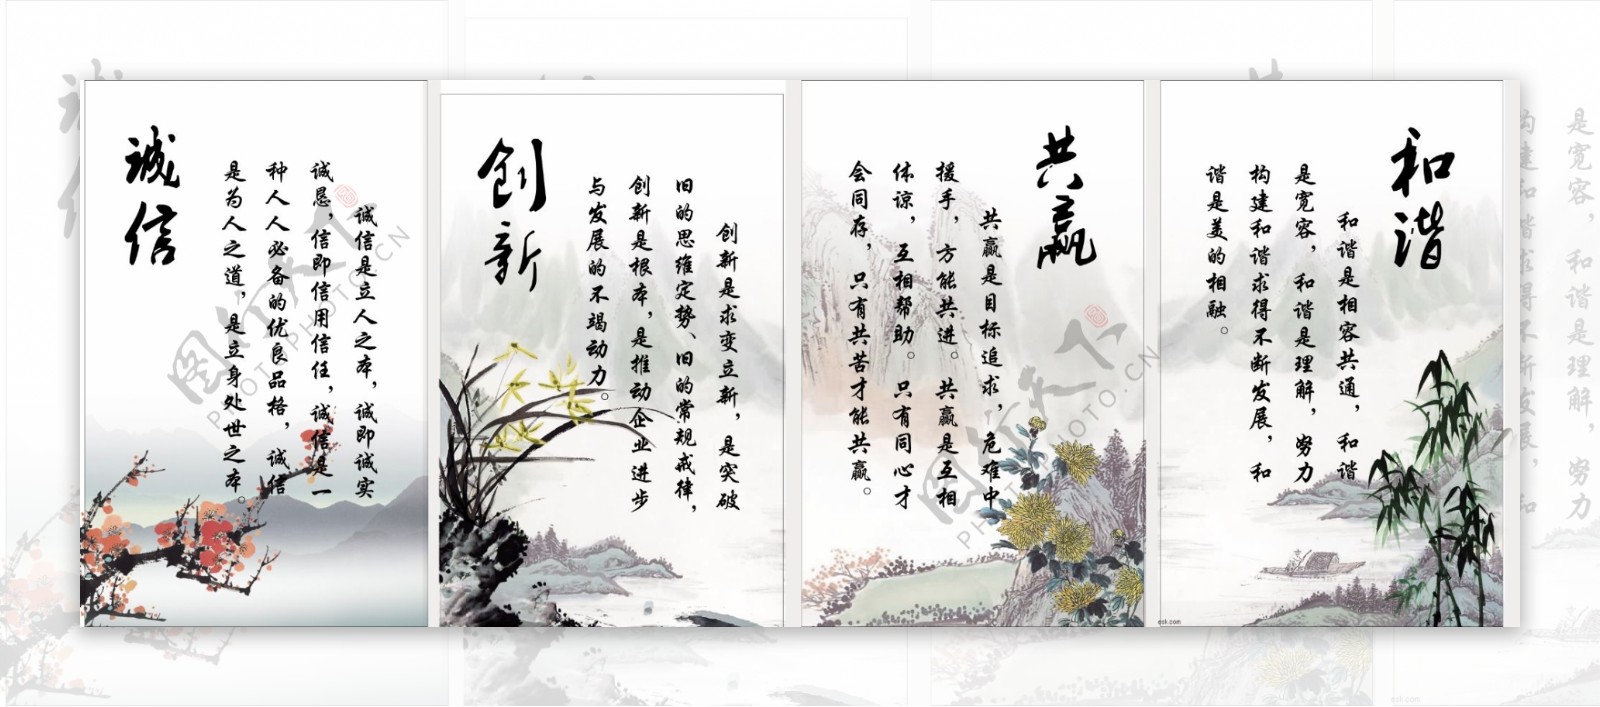 诚信
诚信是立人之本，诚即诚实
诚恳，信即信用信任，诚信是一
种人人必备的优良品格，诚信
是为人之道，是立身处世之本。
创新
创新是求变立新，是突破
旧的思维定势、旧的常规戒律，
创新是根本，是推动企业进步
与发展的不竭动力。
共赢
共赢是目标追求，危难中
援手，方能共进。共赢是互相
体谅，互相帮助。只有同心才
会同存，只有共苦才能共赢。
和谐
和谐是相容共通，和谐
是宽容，和谐是理解，努力
构建和谐求得不断发展，和
谐是美的相融。
图行天下
PHOTOPHOTO.CN
图行天下
PHOTOPHOTO.CN